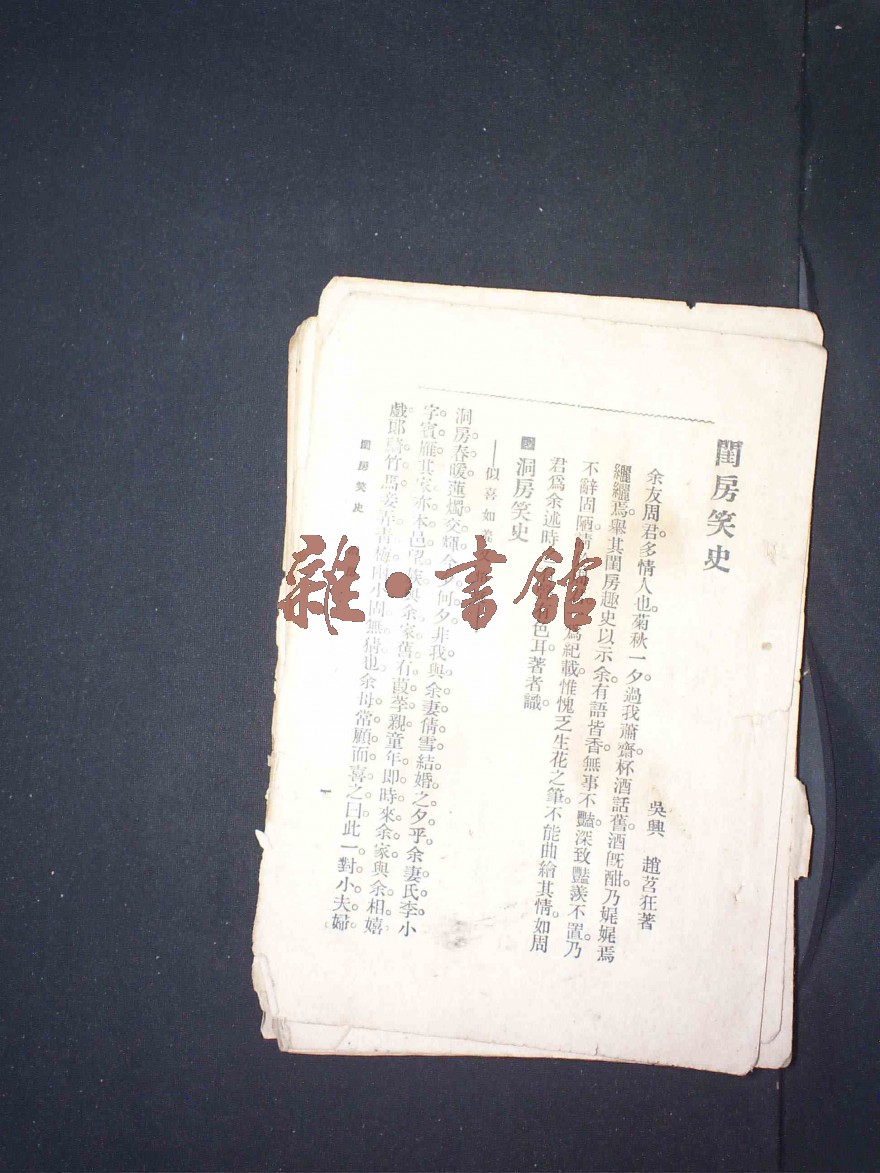 閨房笑史
吳興 趙苕狂著
余友周君多情人也。菊秋一夕。過我蕭齋。杯酒話舊。酒旣酣。乃娓娓焉
纚纚焉。舉其閨房趣史以示余。有語皆香。無事不豔。深致豔羨不置。乃
不辭固陋。爲紀載。惟愧乏生花之筆。不能曲繪其情。如周
君爲余述時色耳。著者識
洞房笑史
似喜如
洞房春暖。蓮燭交輝。何夕。非我與余妻倩雪結婚之夕乎。余妻氏李。小
字賓雁。其家亦本邑望族。與余家舊有葭莩親。童年卽時來余家。與余相嬉
戲。郎騎竹馬。妾弄青梅。兩小固無猜也。余母常顧而喜之曰。此一對小夫婦。
閨房笑史
一
雜·書館